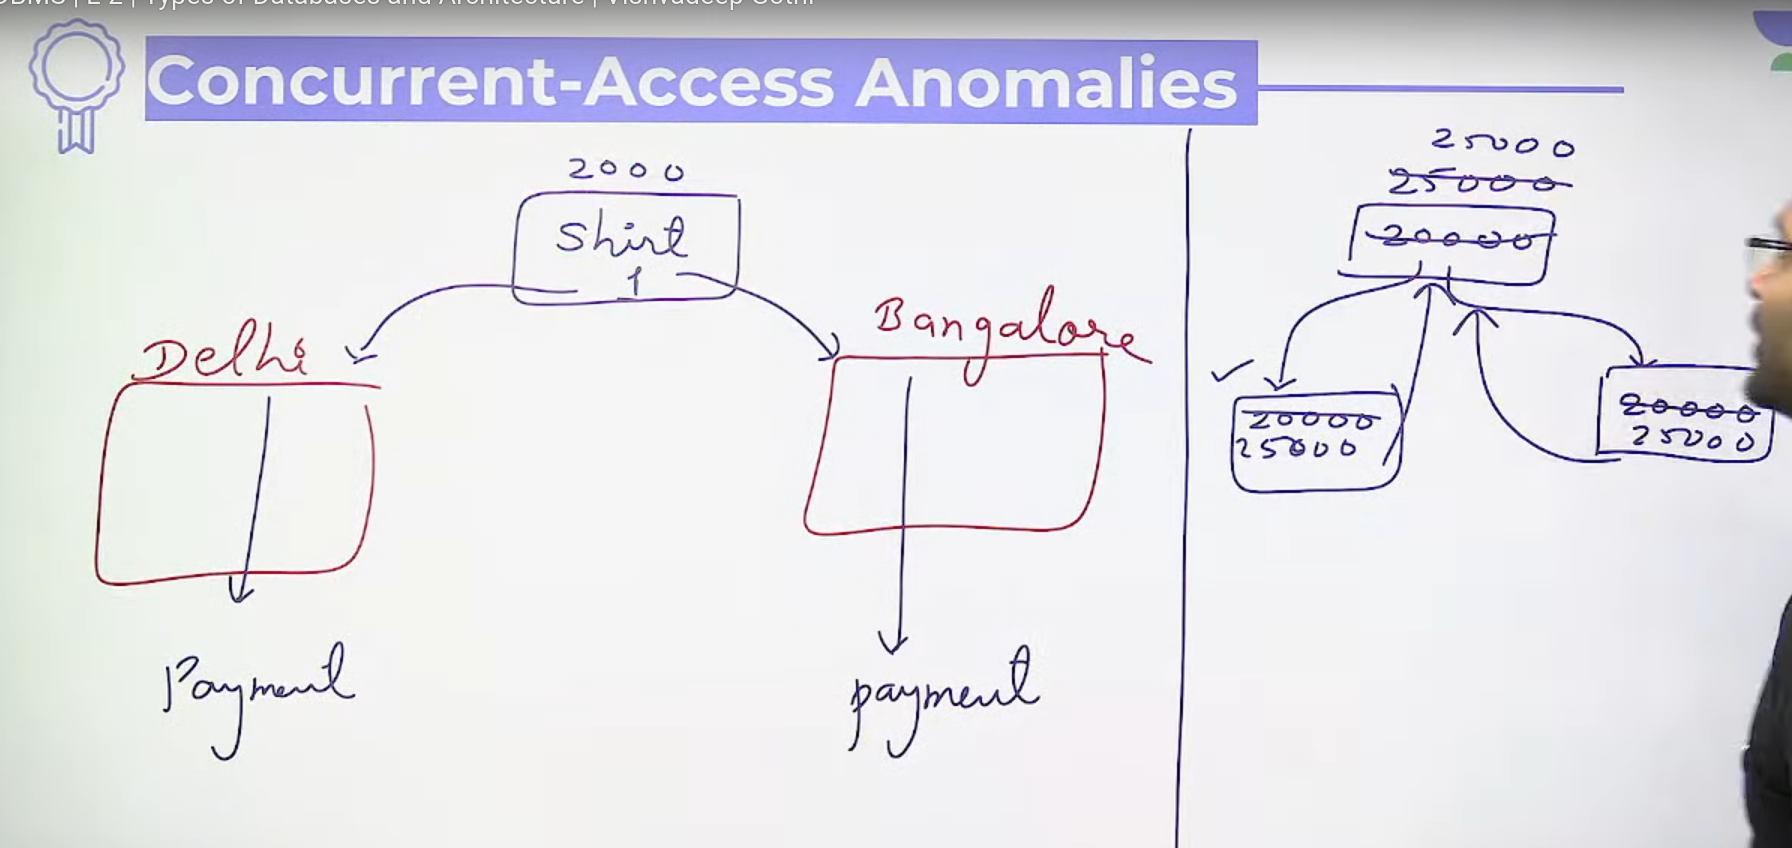 DBMS | L 2 | Types of Databases and Architecture | Vishvadeep Gothi
Concurrent-Access Anomalies
2000
Shirt
1
Delhi
Bangalore
Payment
payment
25000
25000
20000
20000
25000
20000
25000